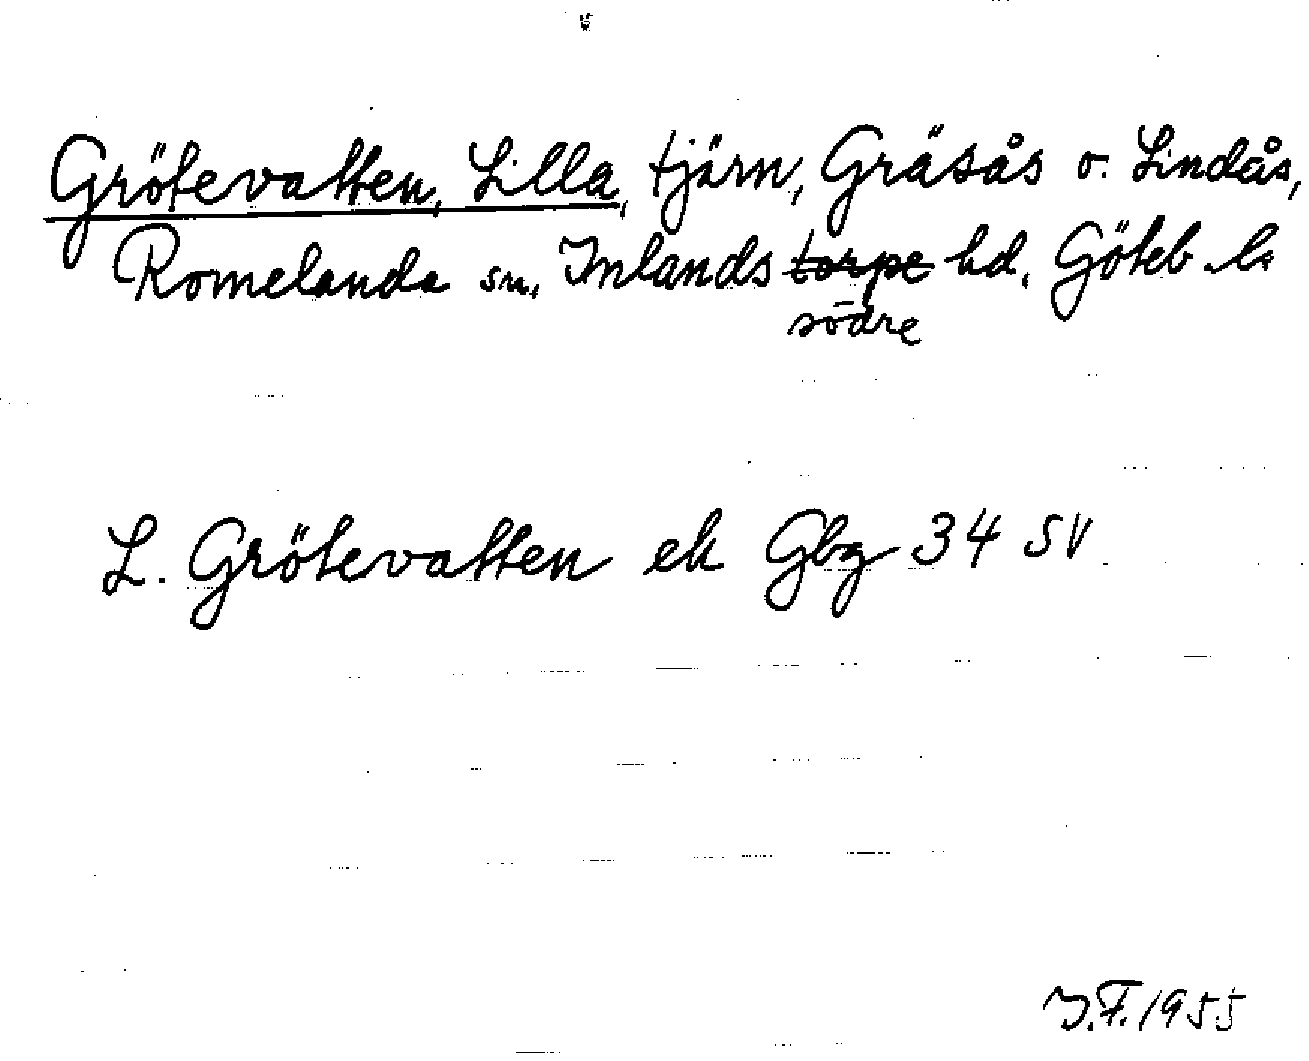 Grötevatten, Lilla, tjärn, Gräsås o. Lindås,
Romelanda sn, Inlands torpe hd. Göteb. l.
södre
L. Grötevatten ek Gbg 34 SV
J.F. 1955